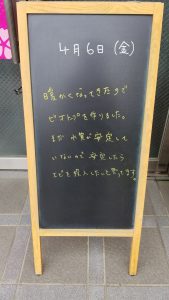 4月6日(金)
暖かくなってきたので
ビオトープを作りました。
まだ水質が安定して
いないので安定したら
エビを投入したいと思ってます。